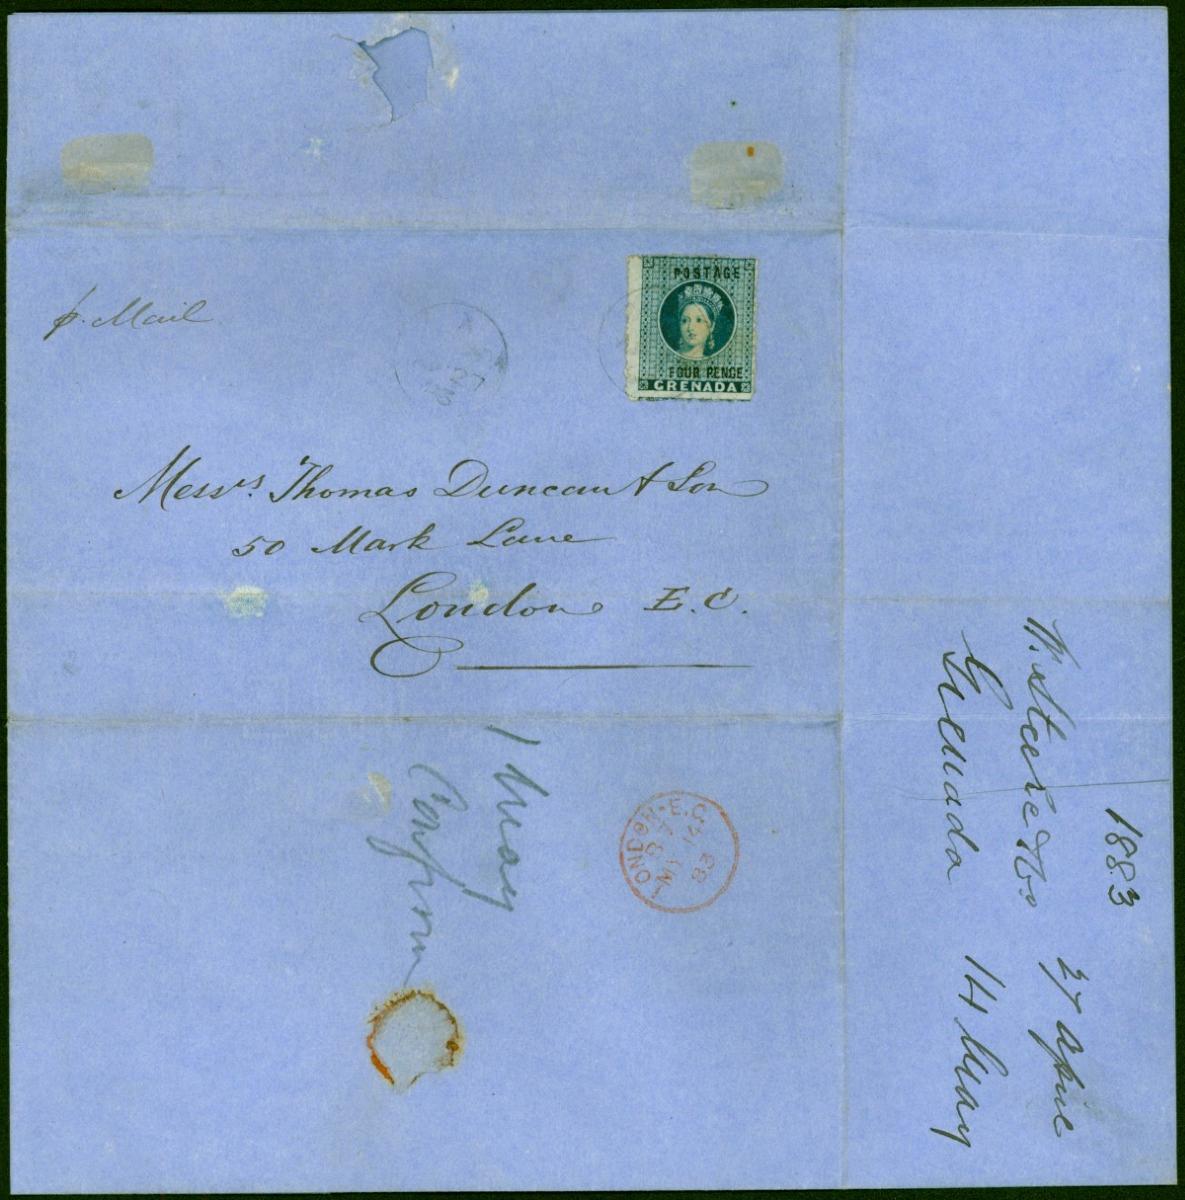 p. Mail
A
27
POSTAGE
FOUR PENCE
GRENADA
Messrs. Thomas Duncan & Son
50 Mark Lane
London E.C.
1 May
LONDON·E.C.
B 7
MY 14
83
1883
27 April
Grenada 14 May